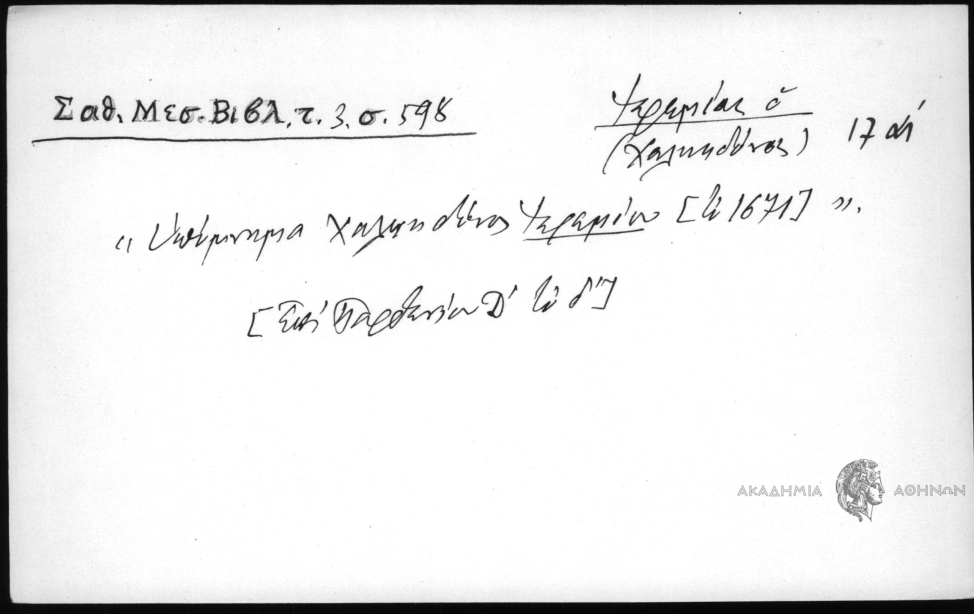 Σαθ. Μεσ. Βιβλ. τ. 3. σ. 598
Ἱερεμίας ὁ
(Χαλκηδόνος) 17 αἰ
« Ὑπόμνημα Χαλκηδόνος Ἱερεμίου [τῷ 1671] ».
[Ἐπὶ Παρθενίου Δ' τῷ δ']
ΑΚΑΔΗΜΙΑ ΑΘΗΝΩΝ